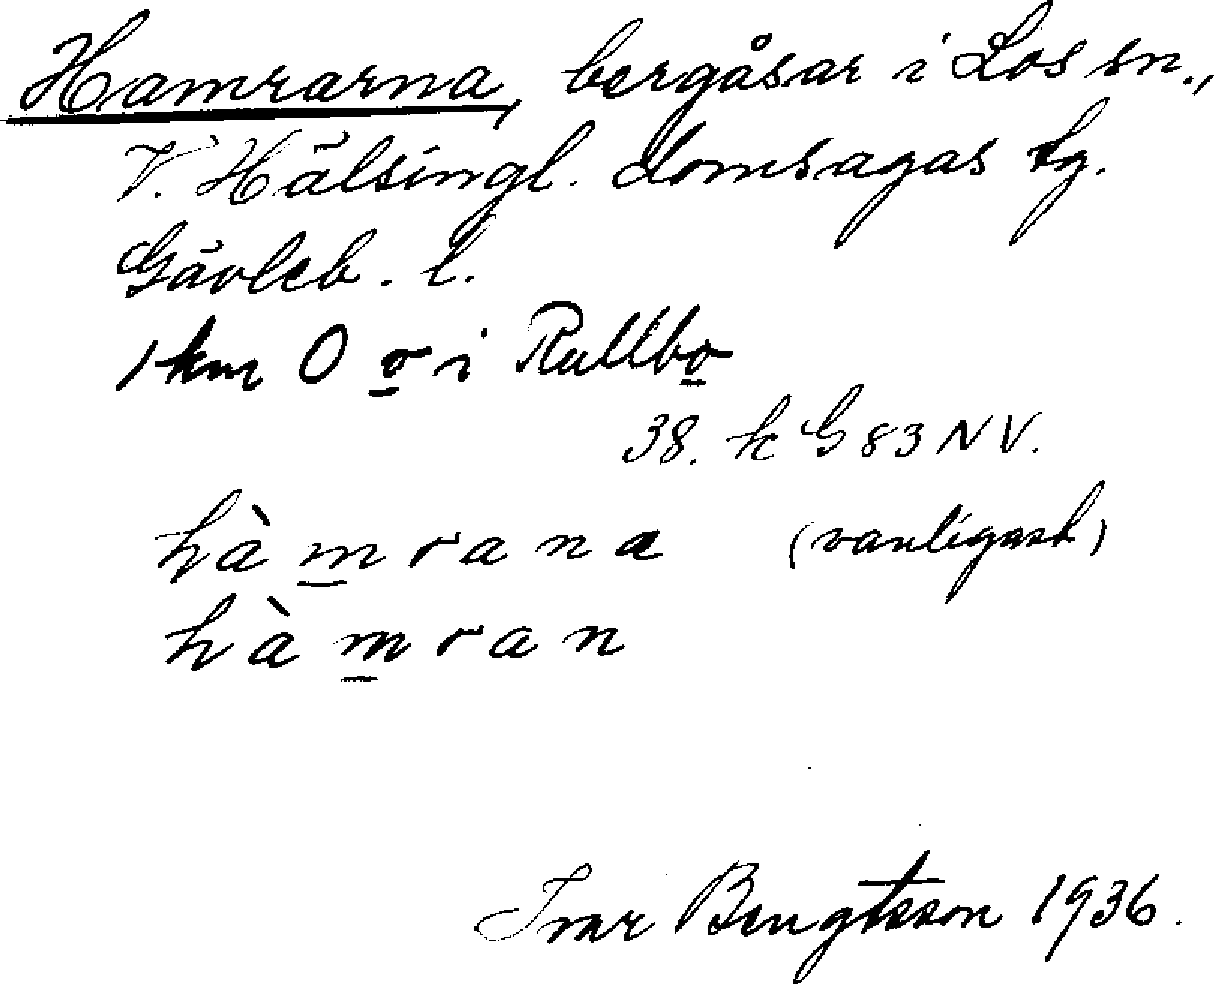 Hamrarna, bergåsar i Los sn.,
V. Hälsingl. domsagas tg.
Gävleb. l.
1 km O o i Rullbo
38. k G 83 NV.
hàmrana (vanligast)
hàmran
Ivar Bengtsson 1936.